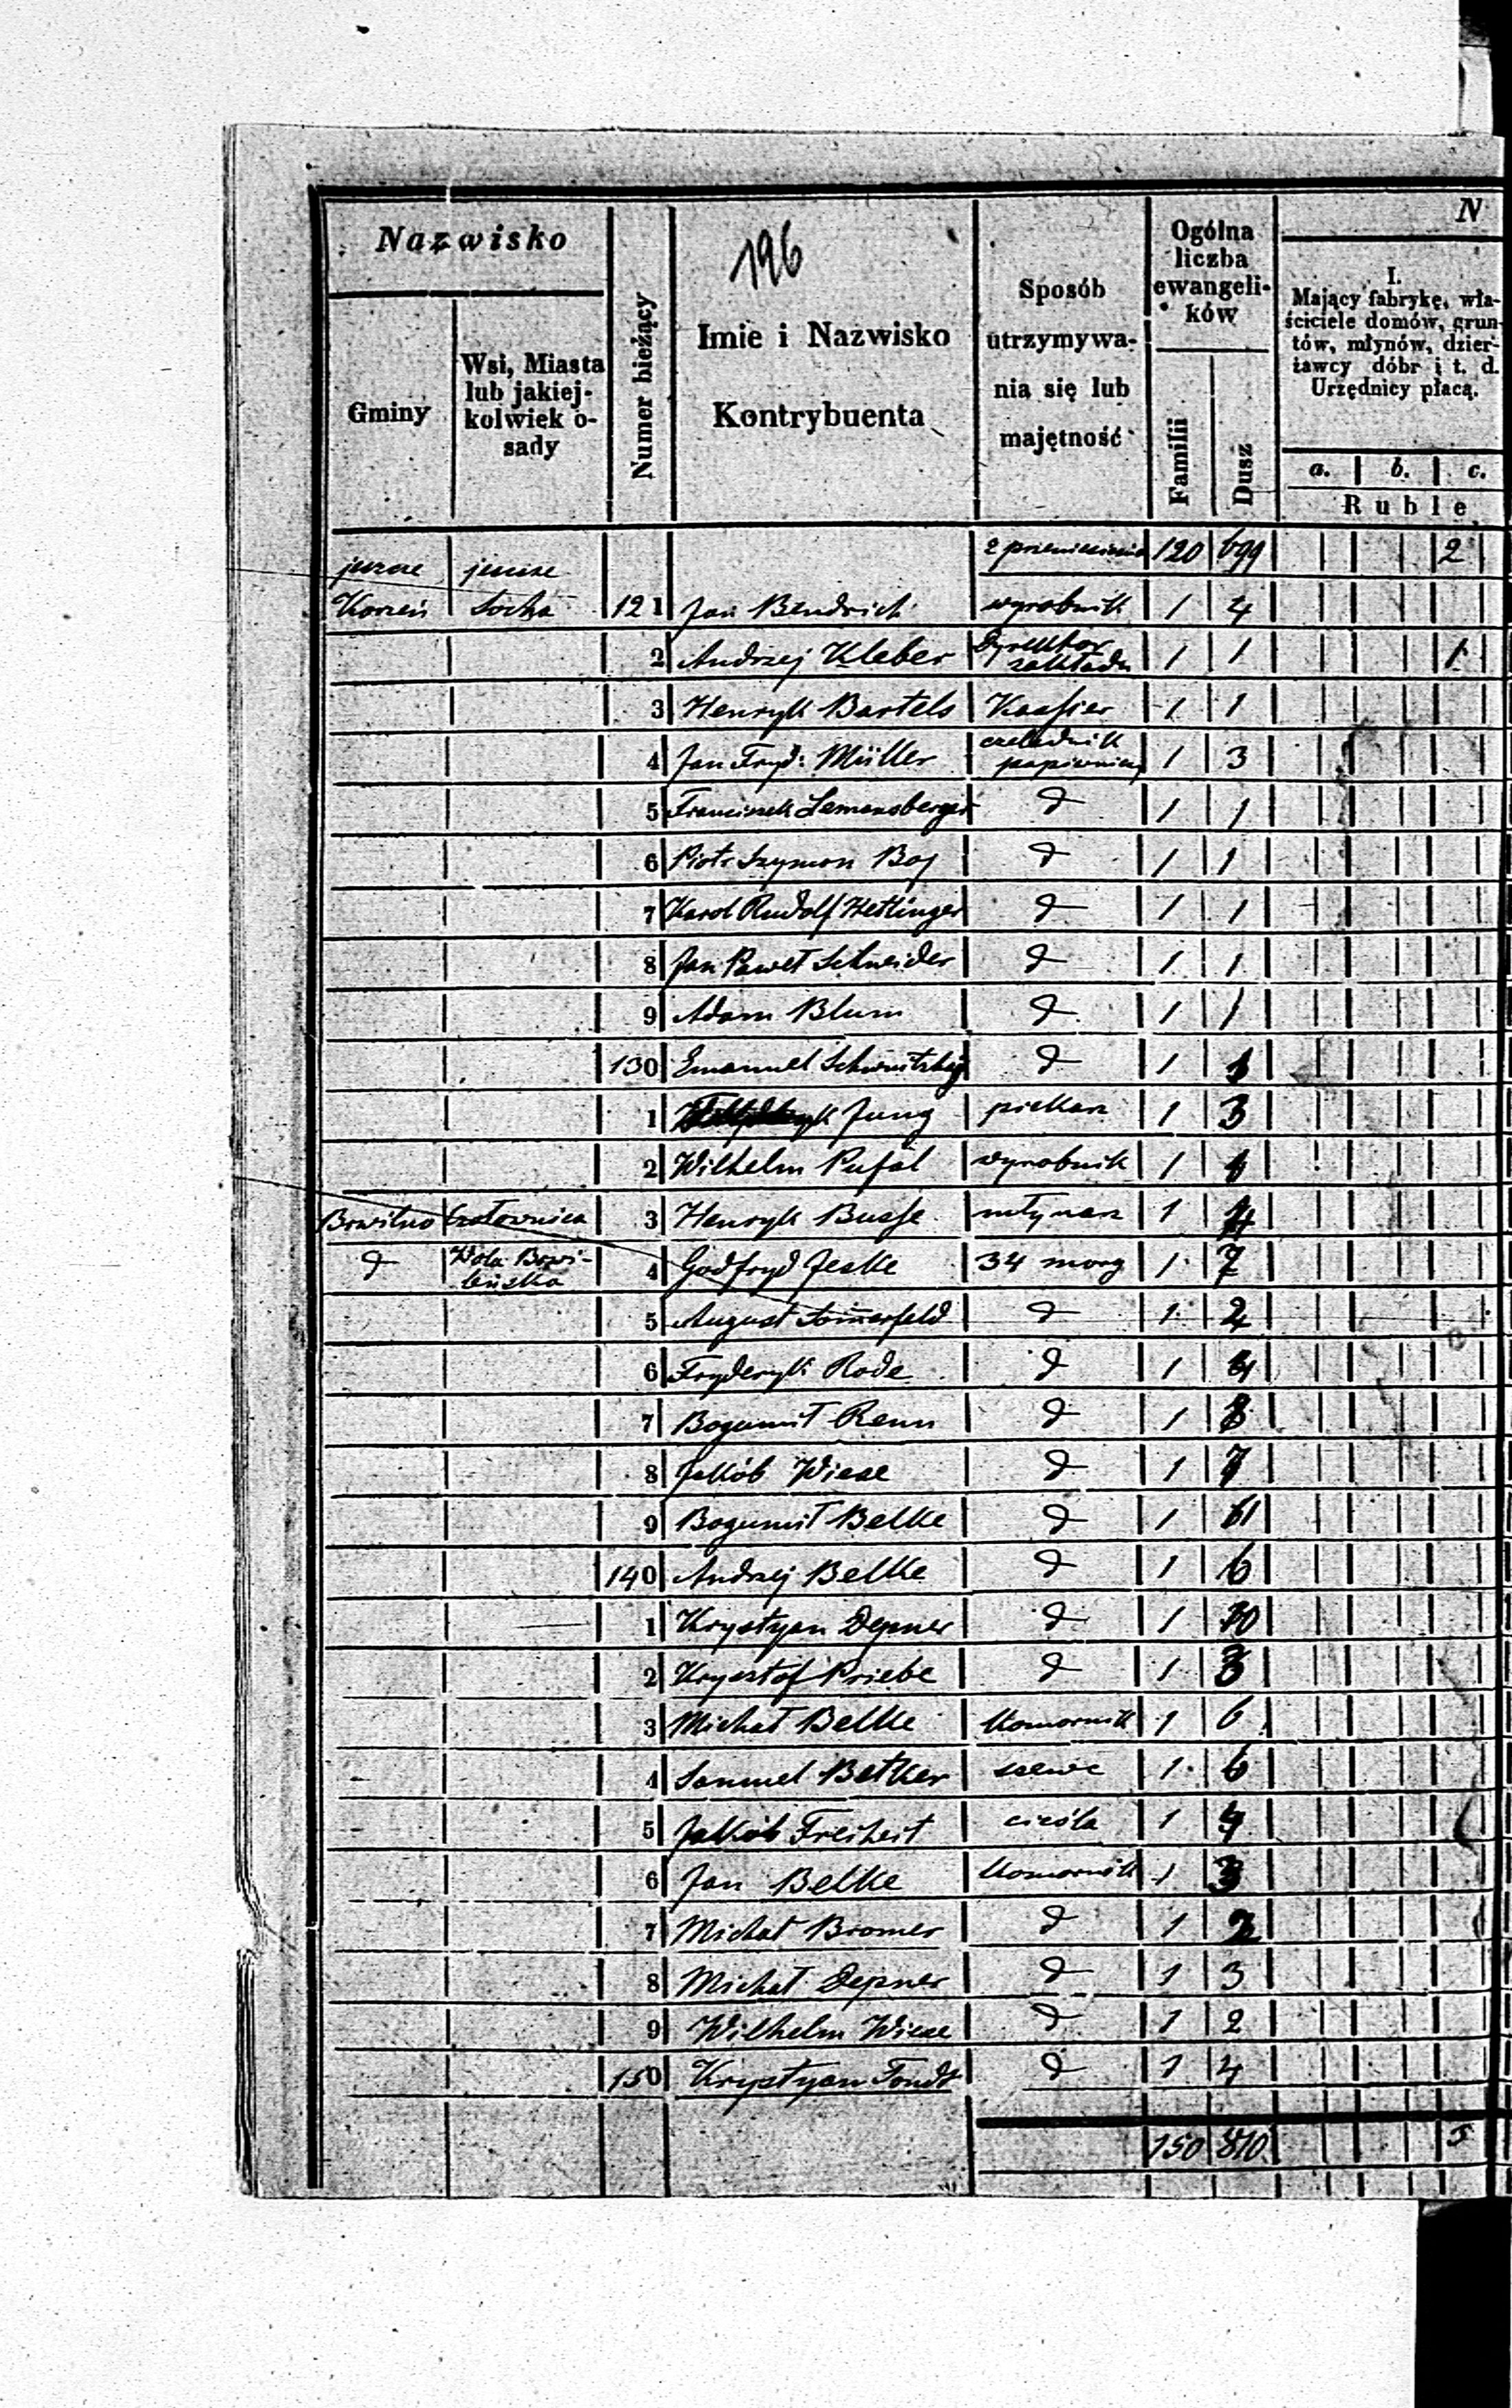 196
Nazwisko
Gminy
Wsi, Miasta
lub jakiej-
kolwiek o-
sady
Numer bieżący
Imie i Nazwisko
Kontrybuenta
Sposób
utrzymywa-
nia się lub
majętność
Ogólna
liczba
ewangeli-
ków
Familii
Dusz
N
I.
Mający fabrykę, wła-
ściciele domów, grun-
tów, młynów, dzier-
żawcy dóbr i t. d.
Urzędnicy płacą.
a. b. c.
Ruble
z przeniesienia 120 699 2
jeszcze jeszcze
Korzeń Socha 121 Jan Bendrich wyrobnik 1 4
2 Andrzej Kleber Dyrektor zakładu 1 1 1
3 Henryk Bartels Kassier 1 1
4 Jan Fryd: Müller czeladnik papierniczy 1 3
5 Franciszek Lemansberger d 1 1
6 Piotr Szymon Boj d 1 1
7 Karol Rudolf Hettinger d 1 1
8 Jan Paweł Schneider d 1 1
9 Adam Blum d 1 1
130 Emanuel d 1 1
1 Jung piekarz 1 3
2 Wilhelm Pufal wyrobnik 1
3 Henryk Busse młynarz 1 4
Brwilno
d Wola Brwi-
leńska 4 Godfryd Jeske 34 morg 1 7
5 August Som̄erfeld d 1 2
6 Fryderyk Rode d 1 4
7 Bogumił Renn d 1 8
8 Jakób Wiese d 1 7
9 Bogumił Belke d 1
140 Andrzej Belke d 1 6
1 Krystyan Depner d 1 10
2 Krysztof Priebe d 1 3
3 Michał Belke komornik 1 6
4 Samuel Betker szewc 1 6
5 Jakób Freiheit cieśla 1 4
6 Jan Belke komornik 1 3
7 Michał Bromer d 1 2
8 Michał Depner d 1 3
9 Wilhelm Wiese d 1 2
150 Krystyan Fondt d 1 4
150 810 5